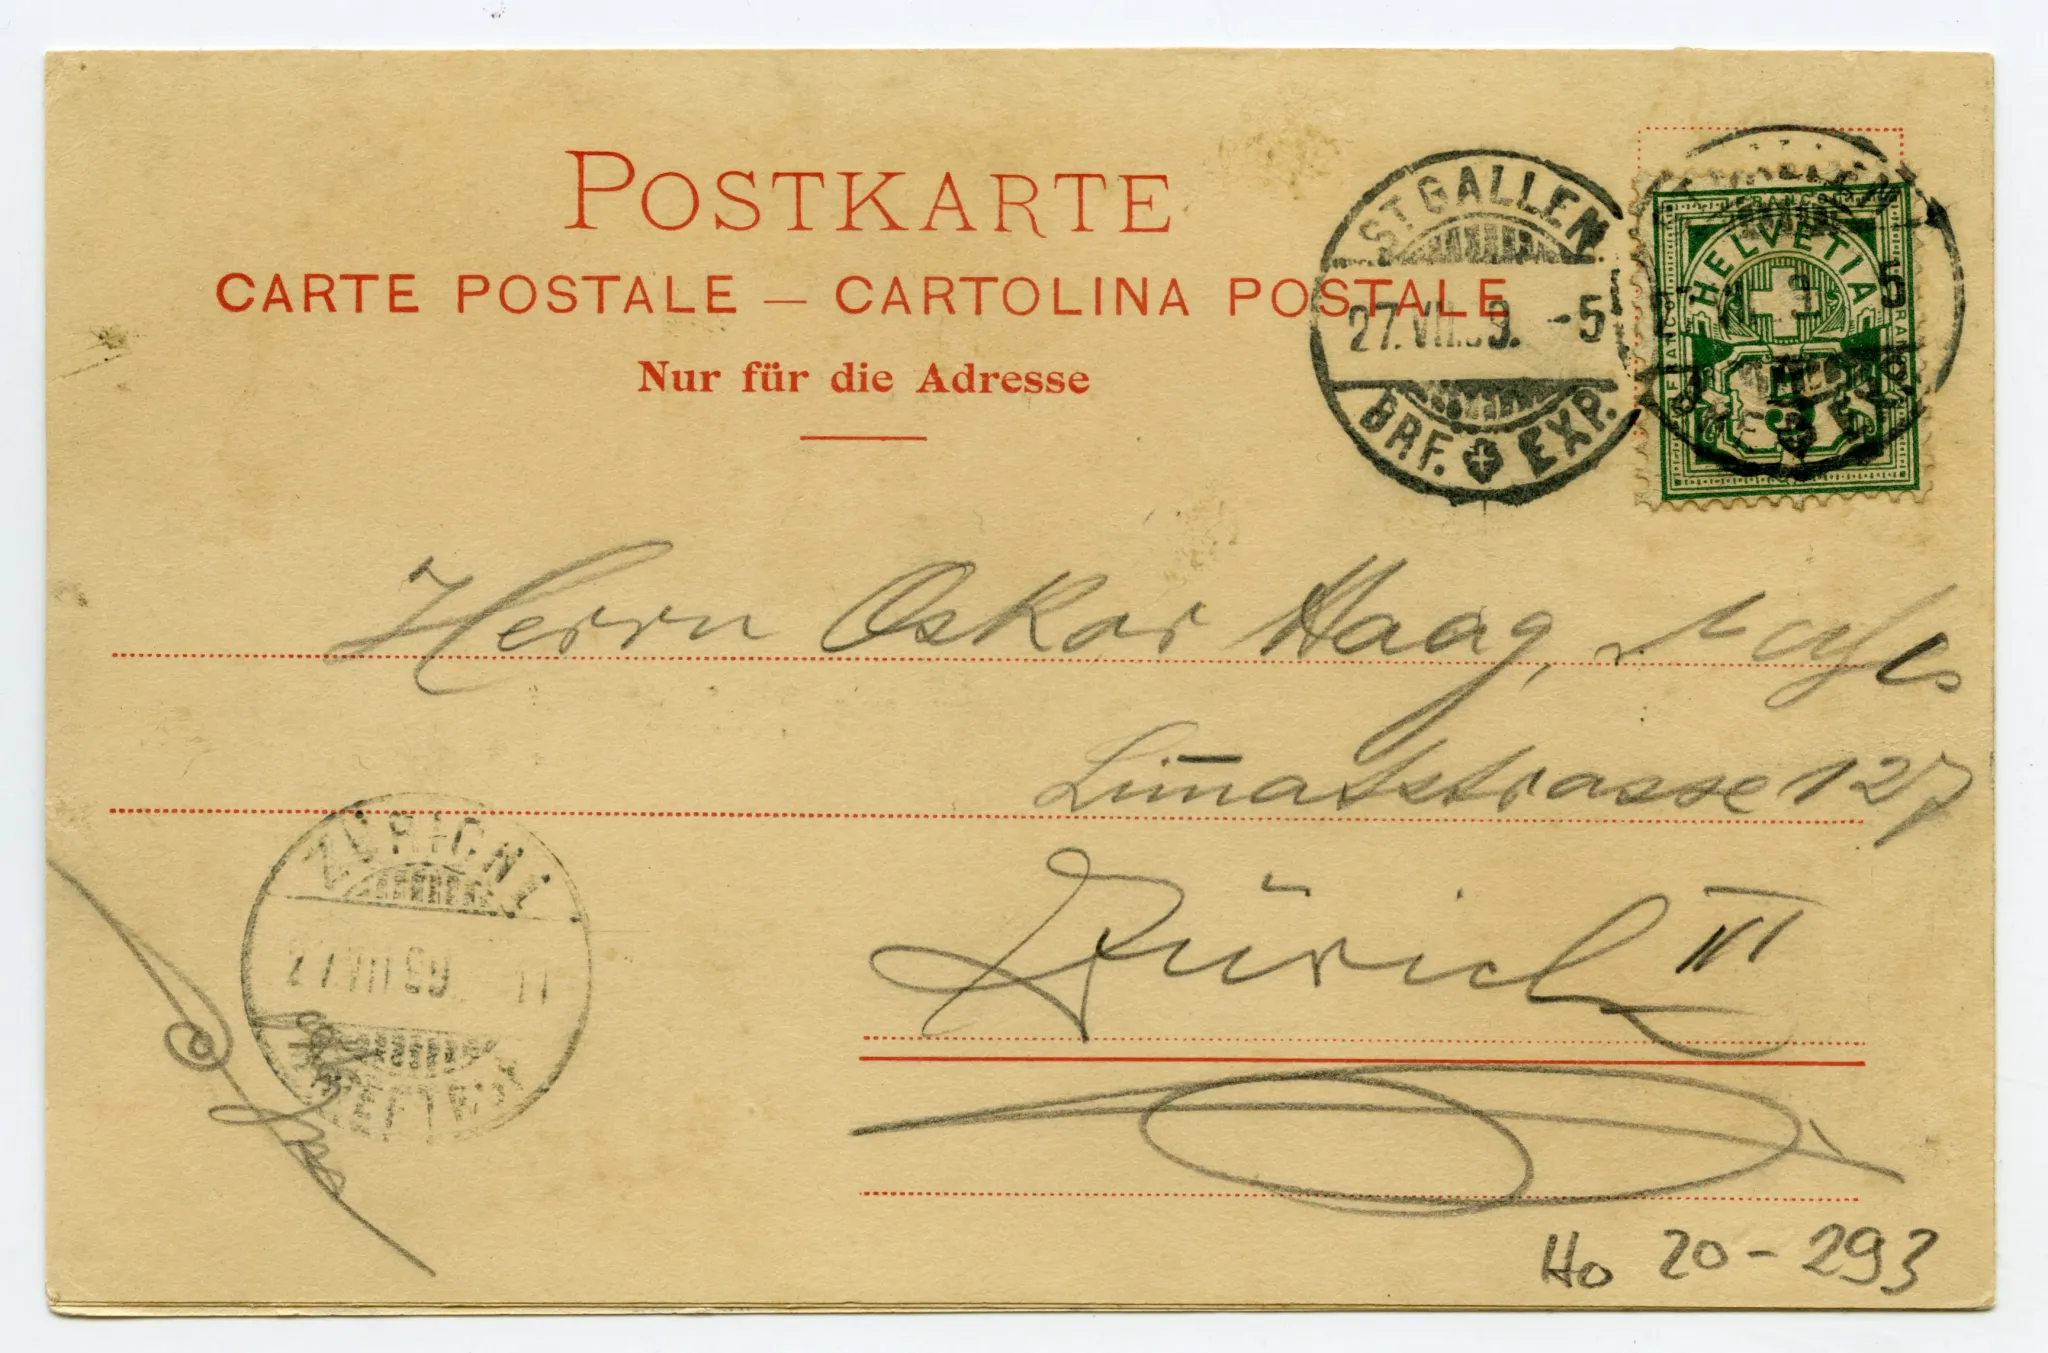 POSTKARTE
CARTE POSTALE — CARTOLINA POSTALE
Nur für die Adresse
ST. GALLEN
27.VII.99. -5
BRF. EXP.
FRANCO
HELVETIA
FRANCO
FRANCO
5
Herrn Oskar Haag,
Lim̅atstrasse 127
Zürich III
ZÜRICH
27.VII.99. 11
Ho 20-293